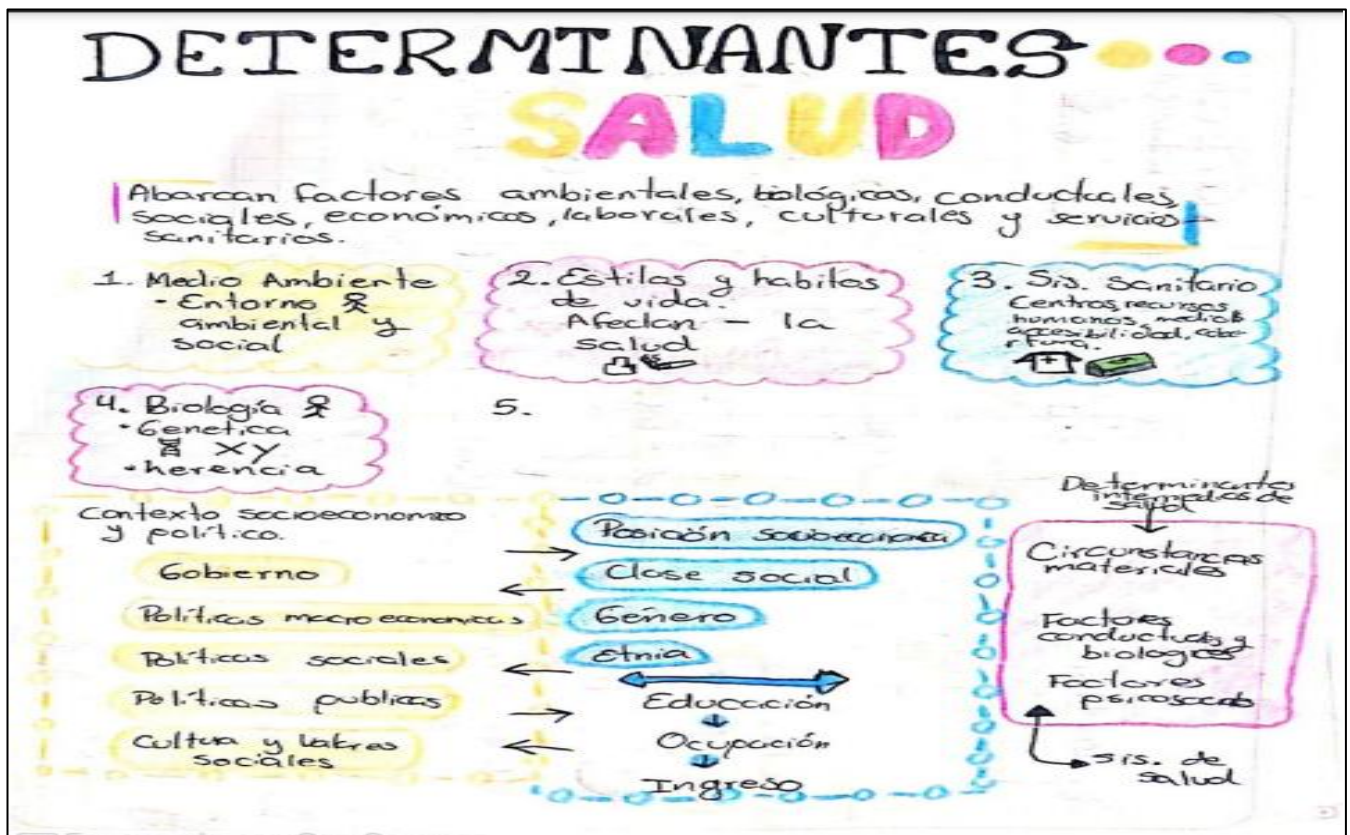 DETERMINANTES
SALUD
Abarcan factores ambientales, biológicos, conductuales,
sociales, económicos, laborales, culturales y servicios
sanitarios.
1. Medio Ambiente
• Entorno
ambiental y
social
2. Estilos y habitos
de vida.
Afectan - la
salud
3. Sis. Sanitario
Centros, recursos
humanos, medios
accesibilidad, cober
tura.
4. Biología
• Genetica
XY
• herencia
5.
Contexto socioeconomico
y político.
Gobierno
Políticas macroeconomicas
Políticas sociales
Políticas publicas
Cultura y valores
sociales
Posición
Clase social
Género
Etnia
Educación
Ocupación
Ingreso
Determinantes
intermedios de
salud
Circunstancias
materiales
Factores
conductuales y
biologicos
Factores
sis. de
salud